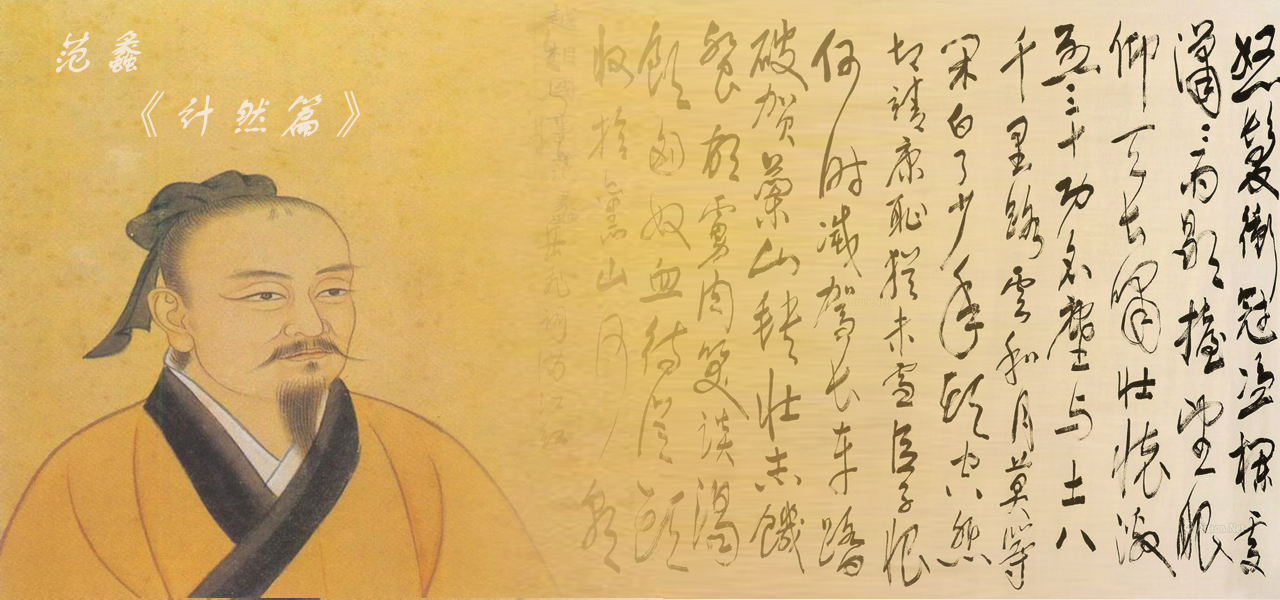 范蠡
《计然篇》
怒髮衝冠憑欄處
瀟〻雨歇擡望眼
仰天長嘯壯懷激
烈三十功名塵与土八
千里路雲和月莫等
閑白了少年頭空悲
切靖康恥猶未雪臣子恨
何時滅駕長車踏
破賀蘭山缺壯志饑
餐胡虜肉笑談渴
飲匈奴血待從頭
收拾舊山河